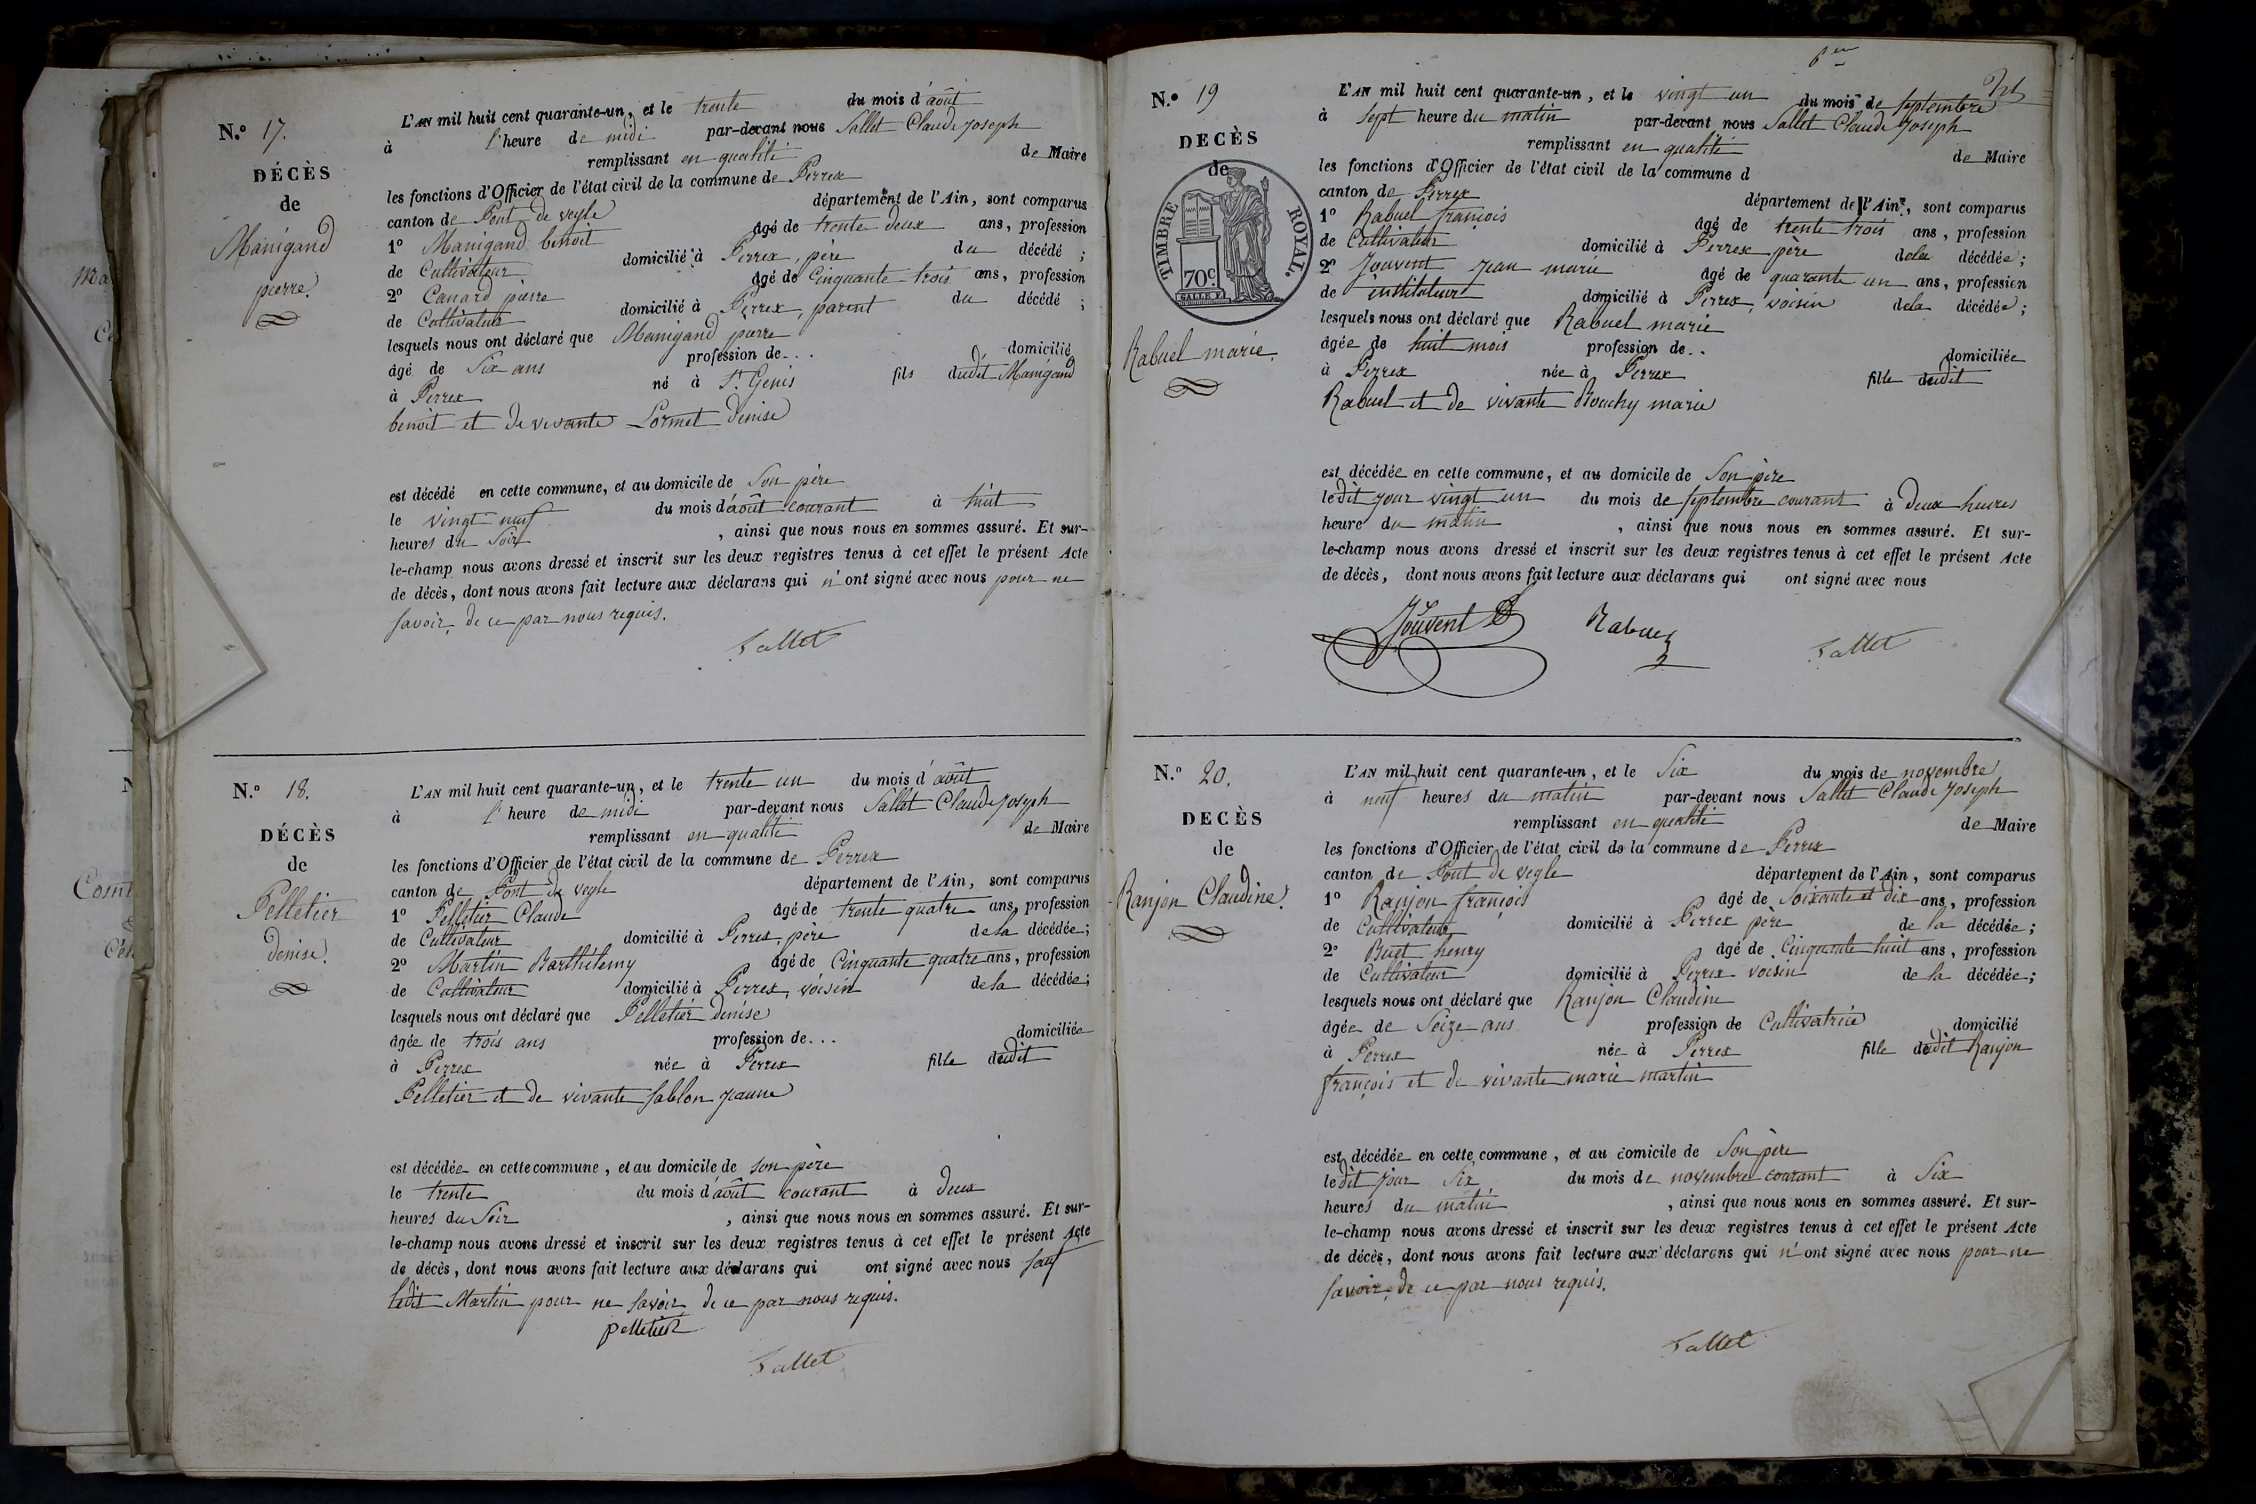 N.o 17.
DÉCÈS
de
Manigand
pierre.
L'AN mil huit cent quarante-un, et le trente du mois d'août
à l'heure de midi par-devant nous Sallet Claude Joseph
remplissant en qualité de Maire
les fonctions d'Officier de l'état civil de la commune de Perrex
canton de Pont de veyle département de l'Ain, sont comparus
1o Manigand benoit âgé de trente deux ans, profession
de Cultivateur domicilié à Perrex, père du décédé ;
2o Canard pierre âgé de Cinquante trois ans, profession
de Cultivateur domicilié à Perrex, parent du décédé ;
lesquels nous ont déclaré que Manigand pierre
âgé de Six ans profession de... domicilié
à Perrex né à St. Genis fils dudit Manigand
benoit et de vivante Lormet Denise
est décédé en cette commune, et au domicile de Son père
le vingt neuf du mois d'août courant à huit
heures du Soir, ainsi que nous nous en sommes assuré. Et sur-
le-champ nous avons dressé et inscrit sur les deux registres tenus à cet effet le présent Acte
de décès, dont nous avons fait lecture aux déclarans qui n'ont signé avec nous pour ne
savoir de ce par nous requis.
Sallet
N.o 18.
DÉCÈS
de
Pelletier
denise.
L'AN mil huit cent quarante-un, et le trente un du mois d'août
à l'heure de midi par-devant nous Sallet Claude Joseph
remplissant en qualité de Maire
les fonctions d'Officier de l'état civil de la commune de Perrex
canton de Pont de veyle département de l'Ain, sont comparus
1o Pelletier Claude âgé de trente quatre ans, profession
de Cultivateur domicilié à Perrex, père de la décédée;
2o Martin Barthélemy âgé de Cinquante quatre ans, profession
de Cultivateur domicilié à Perrex, voisin de la décédée;
lesquels nous ont déclaré que Pelletier denise
âgée de trois ans profession de... domiciliée
à Perrex née à Perrex fille dudit
Pelletier et de vivante Sablon Jeanne
est décédée en cette commune, et au domicile de son père
le trente du mois d'août courant à deux
heures du Soir, ainsi que nous nous en sommes assuré. Et sur-
le-champ nous avons dressé et inscrit sur les deux registres tenus à cet effet le présent Acte
de décès, dont nous avons fait lecture aux déclarans qui ont signé avec nous sauf
ledit Martin pour ne savoir de ce par nous requis.
pelletier
Sallet
N.o 19
DECÈS
de
TIMBRE ROYAL.
70c.
Rabuel marie.
L'AN mil huit cent quarante-un, et le vingt un du mois de septembre
à sept heure du matin par-devant nous Sallet Claude Joseph
remplissant en qualité de Maire
les fonctions d'Officier de l'état civil de la commune d
canton de Perrex département de l'Ain, sont comparus
1o Rabuel françois âgé de trente trois ans, profession
de Cultivateur domicilié à Perrex père dela décédée;
2o Jouvent Jean marie âgé de quarante un ans, profession
de instituteur domicilié à Perrex, voisin dela décédée;
lesquels nous ont déclaré que Rabuel marie
âgée de huit mois profession de.. domiciliée
à Perrex née à Perrex fille dudit
Rabuel et de vivante Bouchy marie
est décédée en cette commune, et au domicile de Son père
ledit jour vingt un du mois de septembre courant à deux heures
heure du matin, ainsi que nous nous en sommes assuré. Et sur-
le-champ nous avons dressé et inscrit sur les deux registres tenus à cet effet le présent Acte
de décès, dont nous avons fait lecture aux déclarans qui ont signé avec nous
Jouvent Rabuel Sallet
N.o 20.
DECÈS
de
Ranjon Claudine.
L'AN mil huit cent quarante-un, et le Six du mois de novembre
à neuf heures du matin par-devant nous Sallet Claude Joseph
remplissant en qualité de Maire
les fonctions d'Officier de l'état civil de la commune de Perrex
canton de Pont de veyle département de l'Ain, sont comparus
1o Ranjon françois âgé de Soixante et dix ans, profession
de Cultivateur domicilié à Perrex père de la décédée;
2o Buet henry âgé de Cinquante huit ans, profession
de Cultivateur domicilié à Perrex voisin de la décédée;
lesquels nous ont déclaré que Ranjon Claudine
âgée de Seize ans profession de Cultivatrice domicilié
à Perrex née à Perrex fille dudit Ranjon
françois et de vivante marie martin
est décédée en cette commune, et au domicile de Son père
ledit jour Six du mois de novembre courant à Six
heures du matin, ainsi que nous nous en sommes assuré. Et sur-
le-champ nous avons dressé et inscrit sur les deux registres tenus à cet effet le présent Acte
de décès, dont nous avons fait lecture aux déclarans qui n'ont signé avec nous pour ne
savoir de ce par nous requis.
Sallet